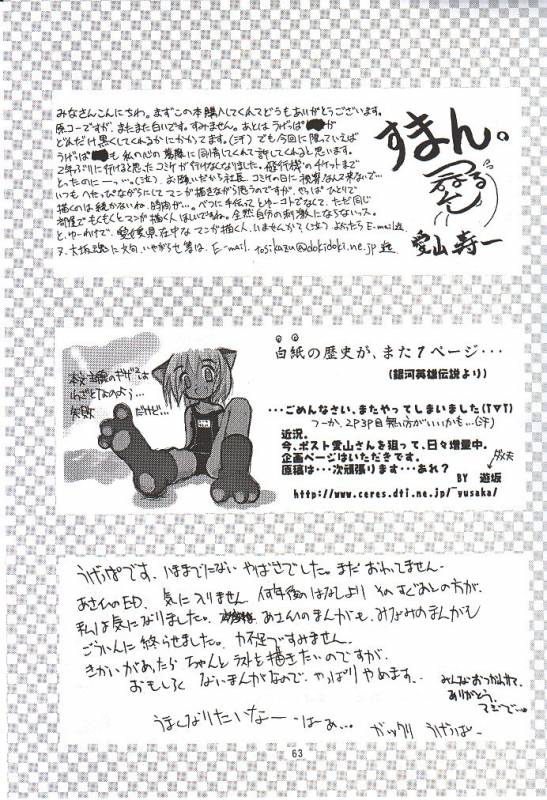 みなさんこんにちわ。まずこの本購入してくれてどうもありがとうございます。
原コーですが、またまた白いです。すみません。あとはうげっぱ が
どんだけ黒くしてくれるかにかかってます。(汗) でも今回に限っていえば
うげっぱ も私の心の葛藤に同情してくれて許してくれると思います。
2年ぶりに行けると思ったコミケが行けなくなりました。飛行機のチケットまで
とったのにー…。(泣) お願いだから社長 コミケの日に視察なんて来ないで…
いつもヘタっぴながらにしてマンガ描きながら思うのですが、やっぱひとりで
描くのは続かないね、時間が…。べつに手伝ってとゆーコトでなくて、ただ同じ
部屋でもくもくとマンガ描く人ほしいですね。全然自分の刺激にならないっス。
と、ゆーわけで、愛媛県在中なマンガ描く人、いませんか?(泣) よかったらE-mail迄
又、大坂魂に文句、いやがらせ等は、E-mail. tosikazu@dokidoki.ne.jp 迄
すまん。
愛山 寿一
白紙の歴史が、また1ページ・・・
(銀河英雄伝説より)
・・・ごめんなさい、またやってしまいました(T▽T)
つーか、2P3P目無い方がいいかも…(汗)
近況。
今、ポスト愛山さんを狙って、日々増量中。
企画ページはいただきです。
ダメ夫
原稿は・・・次頑張ります・・・あれ?
BY 遊坂
http://www.ceres.dti.ne.jp/~yusaka/
わざとなのよう…
失敗 だけど…
うげっぱです、いままでにない やばさでした。まだ おわってません。
あさんのED、気に入りません 何年後のはなしより そのすぐあとの方が、
私は気になりました。 あさんのまんがも、みなみのまんがも
ごういんに終らせました。力不足ですみません。
きかいがあったら ちゃんと ラストを描きたいのですが
おもしろく ないまんがなので、やっぱりやめます。
みんなおつかれさて、
ありがとう。
うまくなりたいなー… はぁ… ガックリ うげっぱ。
63